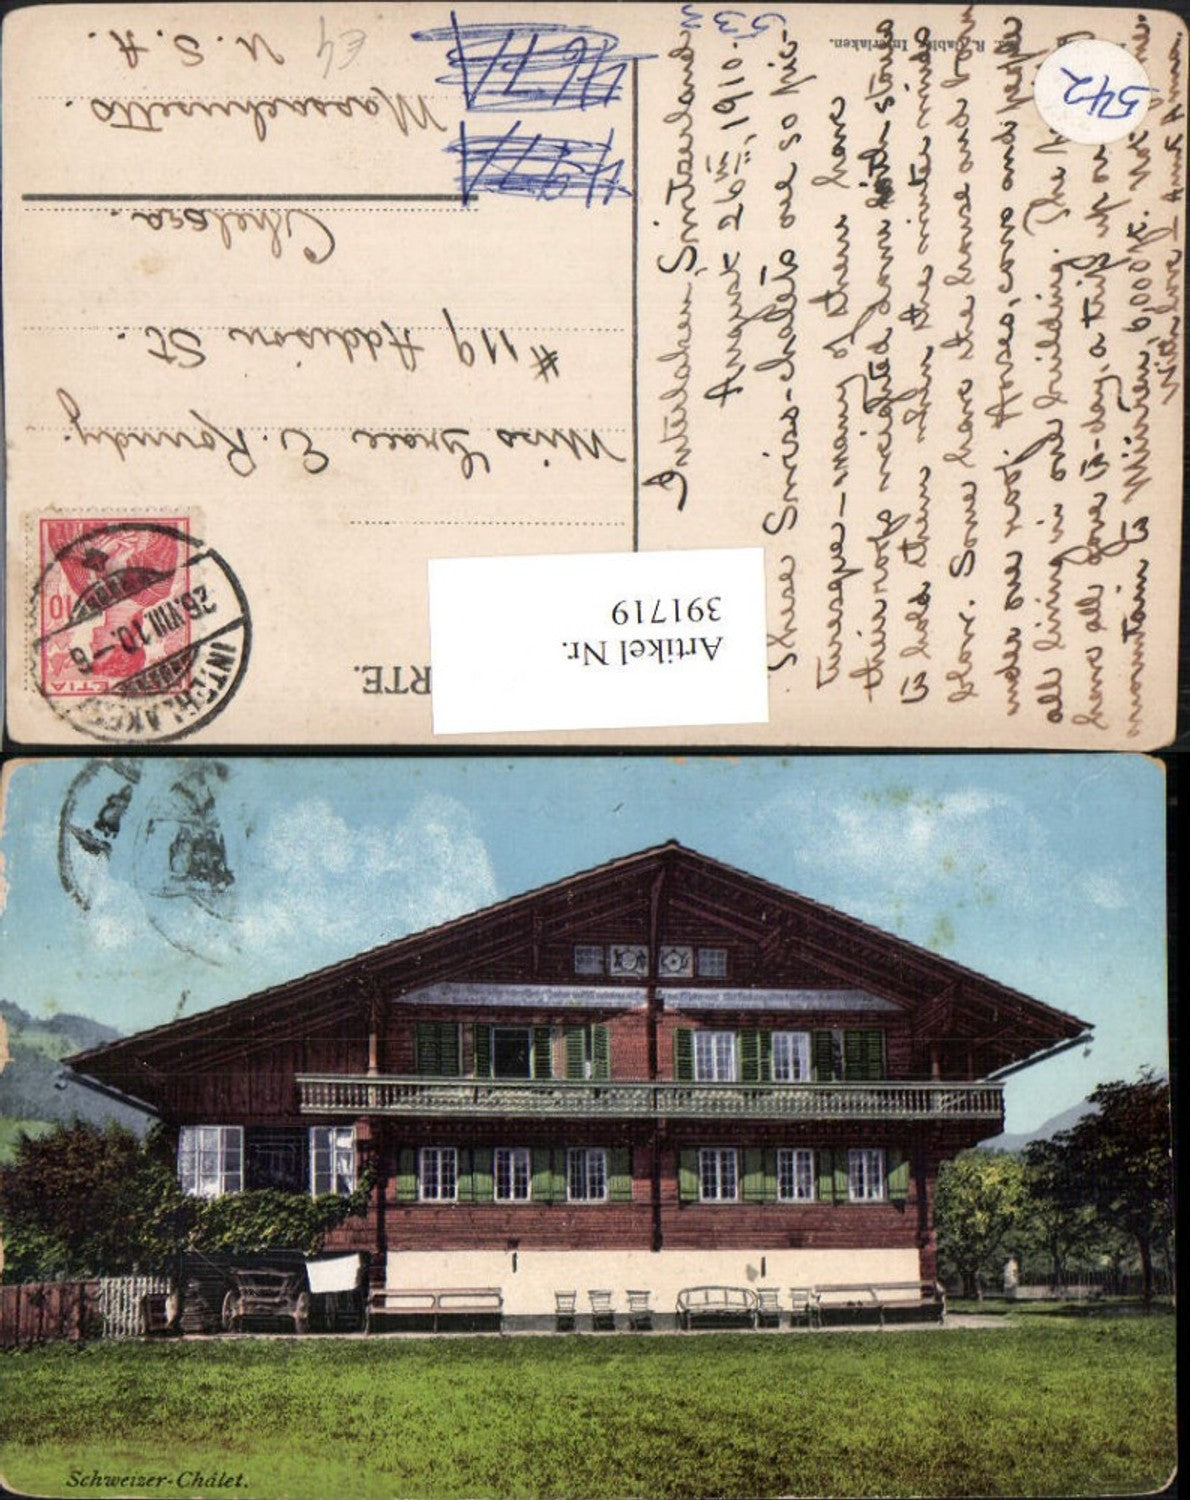 Interlaken, Switzerland
August 26th, 1910.
These Swiss-châlets are so pic-
turesque – many of them have
their roofs weighted down with stones
to hold them when the winter winds
blow. Some have the house and barn
under one roof. Horses, cows and people
all living in one building. The
have all gone to-day, a trip up our
mountain to Mürren, 6,000 ft. Not
With love – Aunt Anna.
532
542
R. Gabler, Interlaken.
RTE.
Artikel Nr.
391719
HELVETIA
10
INTERLAKEN
26.VIII.10.–6
Miss Grace E. Roundy.
#119 Addison St.
Chelsea.
Massachusetts.
U. S. A.
Schweizer-Châlet.